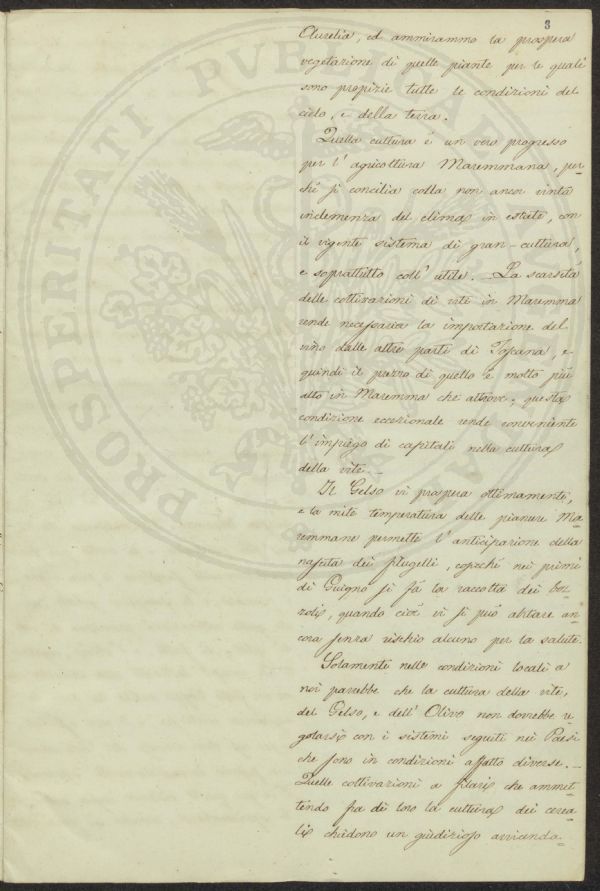 3
Aurelia, ed ammirammo la prospera
vegetazione di quelle piante per le quali
sono propizie tutte le condizioni del
cielo, e della terra.
Quella cultura è un vero progresso
per l'agricoltura Maremmana, per
ché si concilia colla non ancor vinta
inclemenza del clima in estate, con
il vigente sistema di gran-cultura,
e soprattutto coll'utile. La scarsità
delle coltivazioni di vite in Maremma
rende necessaria la importazione del
vino dalle altre parti di Toscana, e
quindi il prezzo di quello è molto più
alto in Maremma che altrove; questa
condizione eccezionale rende conveniente
l'impiego di capitali nella cultura
della vite.
Il Gelso vi prospera ottimamente,
e la mite temperatura delle pianure Ma
remmane permette l'anticipazione della
nascita dei filugelli, cosicché nei primi
di Giugno si fà la raccolta dei boz
zoli, quando cioè vi si può abitare an
cora senza rischio alcuno per la salute.
Solamente nelle condizioni locali a
noi parebbe che la cultura della vite,
del Gelso, e dell'Olivo non dovrebbe re
golarsi con i sistemi seguiti nei Paesi
che sono in condizioni affatto diverse.
Quelle coltivazioni a filari che ammet
tendo fra di loro la cultura dei cerea
li chiedono un giudizioso avvicenda
PROSPERITATI PUBLICAE